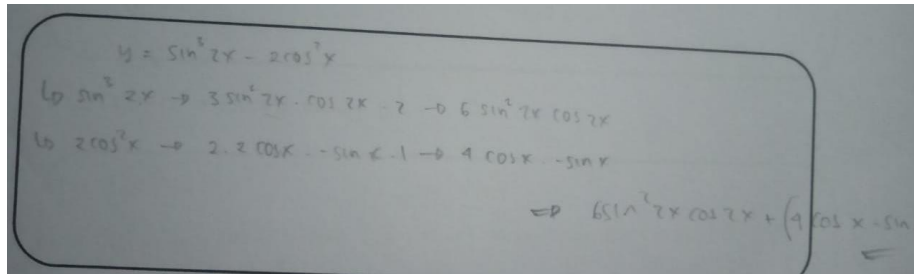 y = sin³ 2x - 2cos²x
↳ sin³ 2x → 3 sin² 2x . cos 2x . 2 → 6 sin² 2x cos 2x
↳ 2cos²x → 2.2 cosx . -sin x . 1 → 4 cosx . -sinx
⇒ 6sin² 2x cos 2x + (4 cos x . -sin